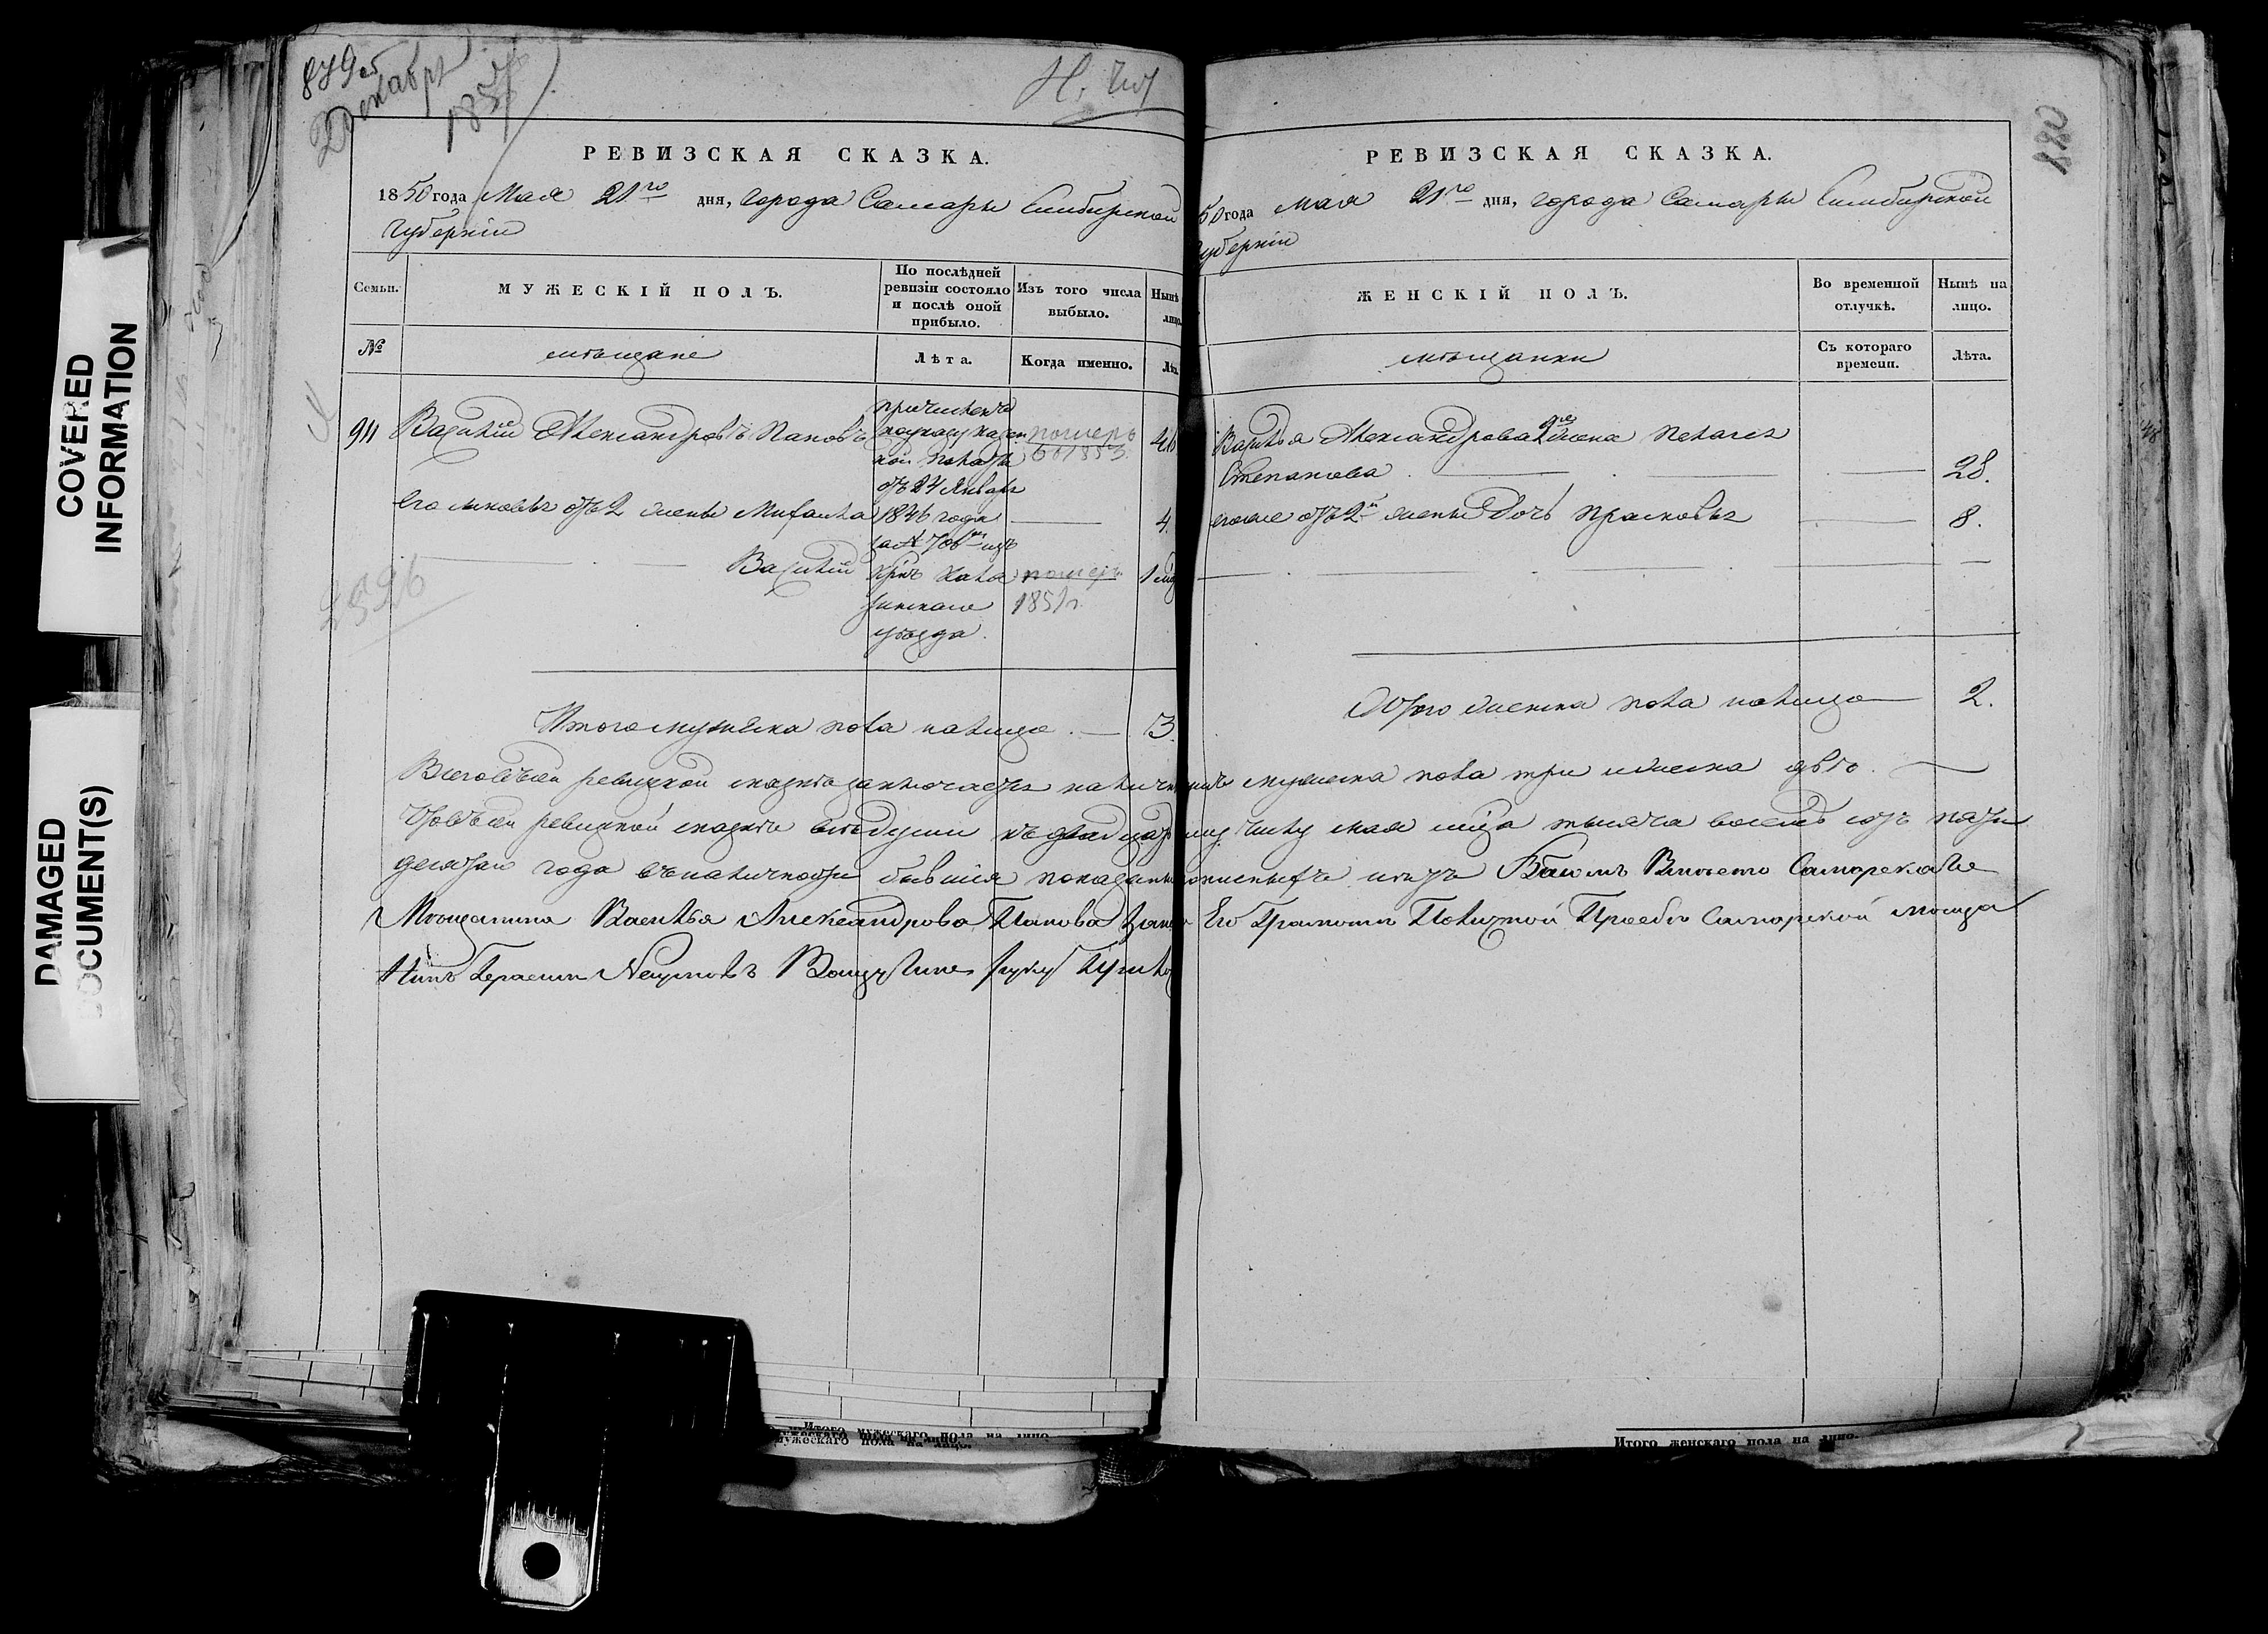 COVERED
INFORMATION
DAMAGED
DOCUMENT(S)
879 об
Декабрь
185
РЕВИЗСКАЯ СКАЗКА.
1850 года Мая 21го дня, города Самары Симбирской
Губерніи
Семьи.
МУЖЕСКІЙ ПОЛЪ.
По послѣдней ревизіи состояло и послѣ оной прибыло.
Изъ того числа выбыло.
Нынѣ
лицо.
№
мѣщане
Лѣта.
Когда именно.
Лѣт
911 Василій Александровъ Пановъ
причисленъ
по указу Казен
ной Палаты
отъ 24 Января
1846 года
за № 706м изъ
Уѣзда.
померъ
въ 1853.
46
Его сыновья отъ 2 жены Михаила
4.
Василій
померъ
1851 г.
1 мѣ
2526
Итого мужеска пола налицо. 3.
880
РЕВИЗСКАЯ СКАЗКА.
50 года мая 21го дня, города Самары Симбирской
губерніи
ЖЕНСКІЙ ПОЛЪ.
Во временной отлучкѣ.
Нынѣ на лицо.
мѣщанки
Съ котораго времени.
Лѣта.
Василья Александрова 2я жена Пелагея
Степанова 28.
его же отъ 2й жены дочь Прасковья 8.
Итого женска пола налицо 2.
Всего въ сей ревизкой сказкѣ заключается наличныхъ мужеска пола три и женска двѣ.
Что въ сей ревизкой сказкѣ всѣ души къ двадцать числу мая мѣца тысяча восемь сотъ пяти
десятаго года въ наличности бывшія показаны и прописныхъ нѣтъ Въ томъ Вместо Самарскаго
Мѣщанина Василья Александрова Панова Его Грамотѣ Прозбѣ Самарской мѣща
Нинъ Герасим руку Прилож
Итого мужескаго пола на лицо
Итого женскаго пола на лицо.